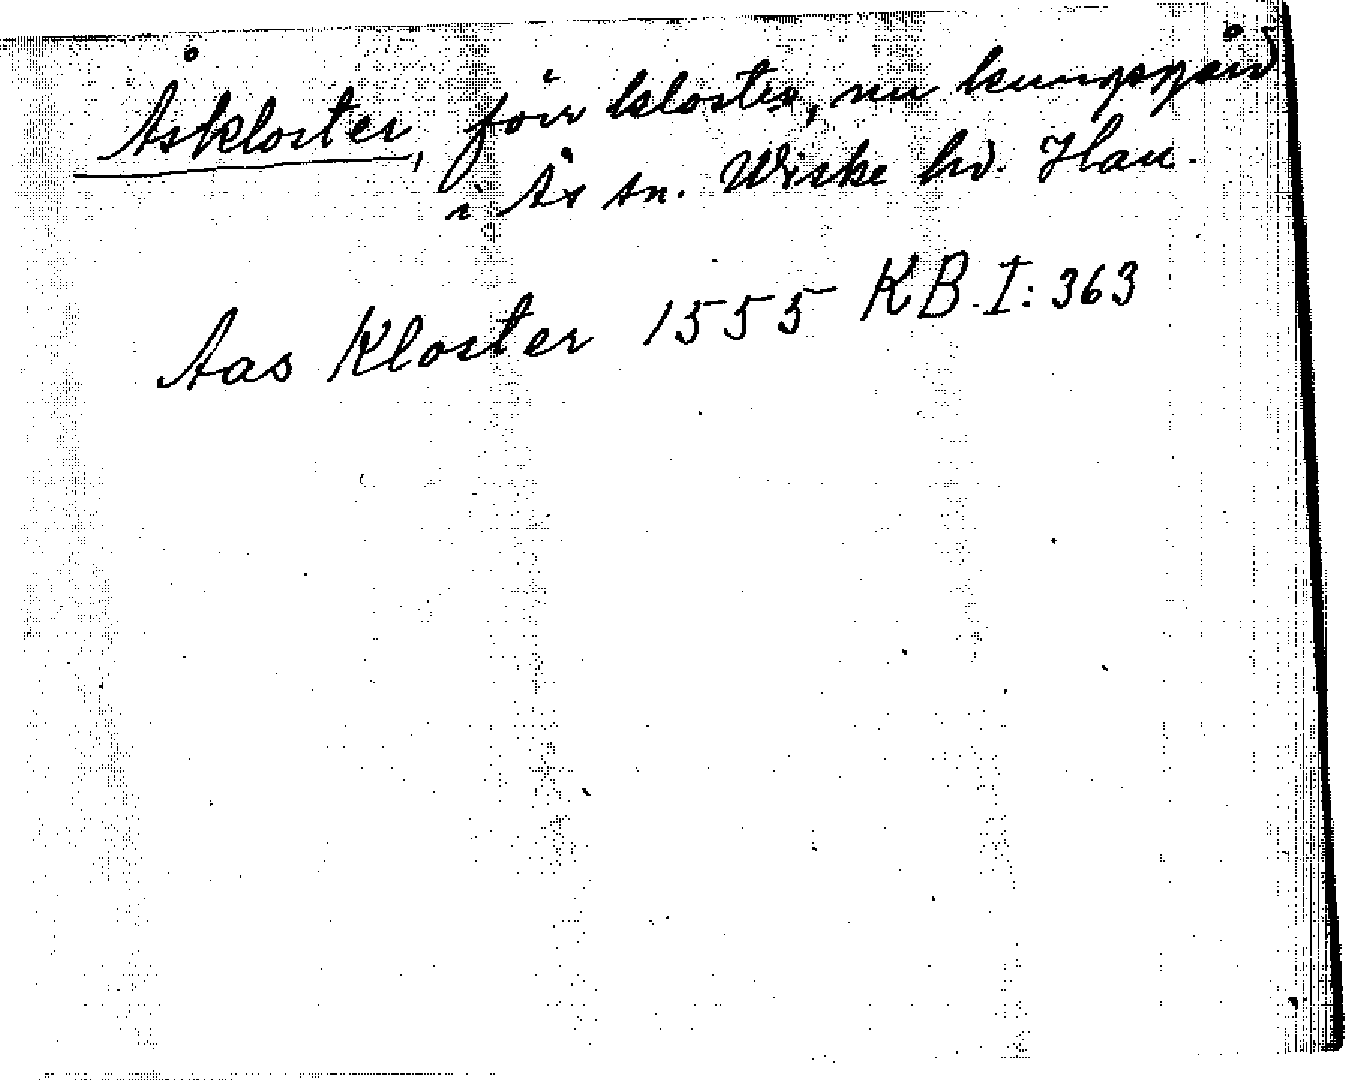 Åskloster, förr kloster, nu kungsgård
i Ås sn. Wiske hd. Hall.
Aas Kloster 1555 KB.I:363